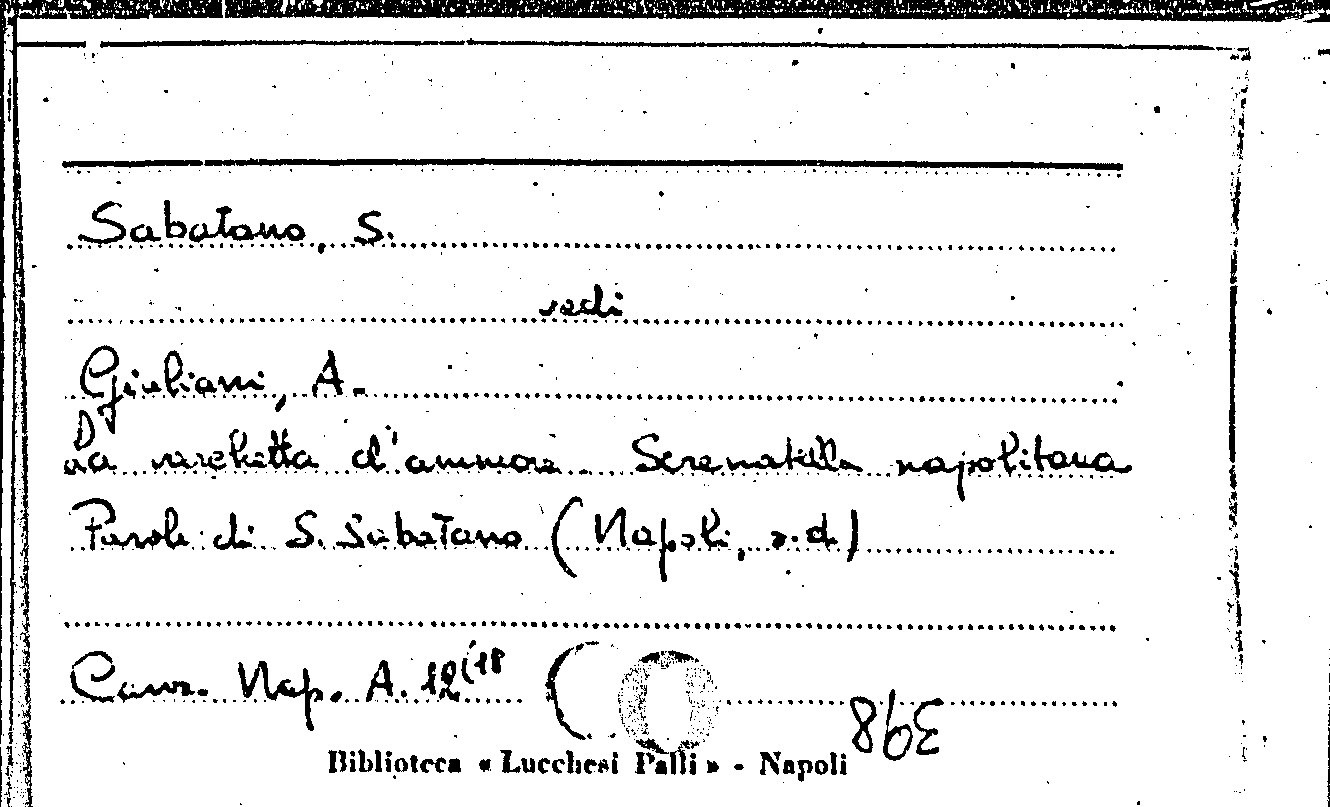 Sabatano, S.
vedi
Giuliani, A.
varchetta d'ammore. Serenatella napolitana
Parole di S. Sabatano (Napoli, s.d.)
Canz. Nap. A. 12(18
Biblioteca « Lucchesi Palli » - Napoli